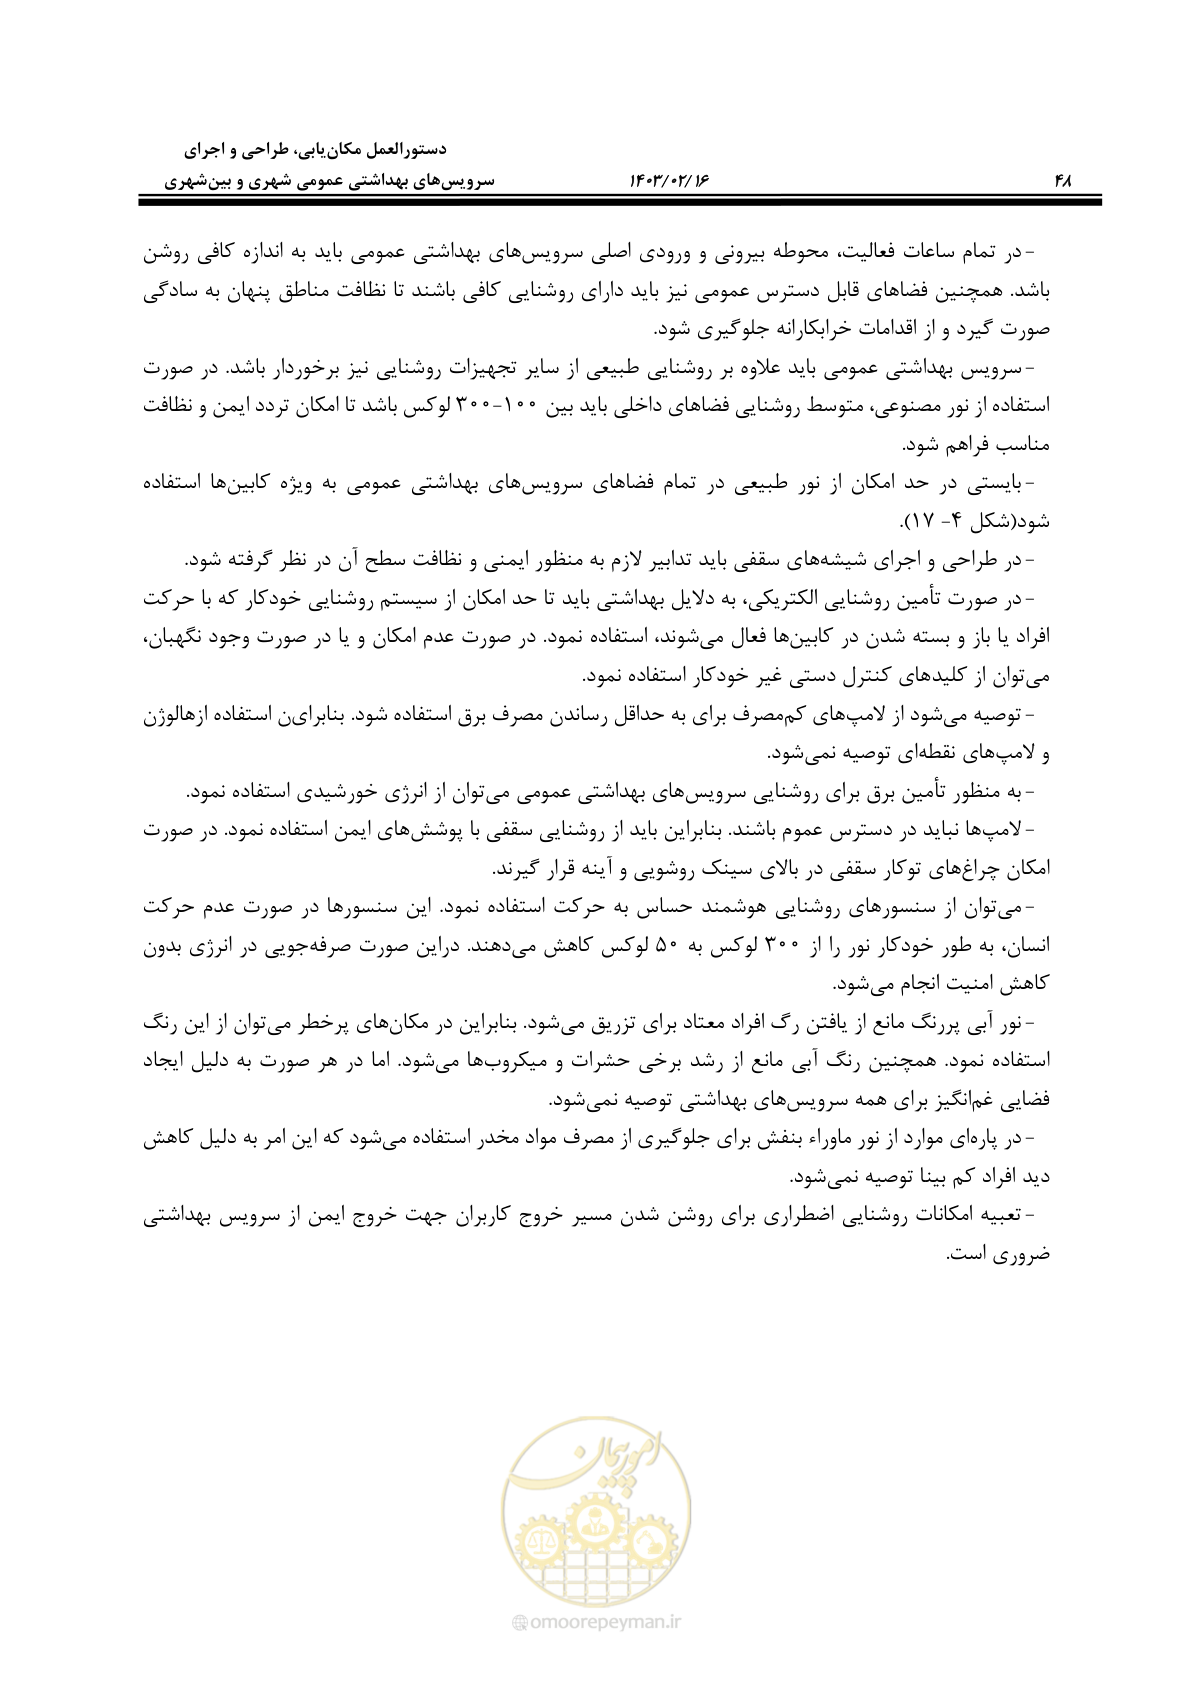 دستورالعمل مکان‌یابی، طراحی و اجرای
سرویس‌های بهداشتی عمومی شهری و بین‌شهری ۱۴۰۳/۰۲/۱۶ ۴۸
- در تمام ساعات فعالیت، محوطه بیرونی و ورودی اصلی سرویس‌های بهداشتی عمومی باید به اندازه کافی روشن
باشد. همچنین فضاهای قابل دسترس عمومی نیز باید دارای روشنایی کافی باشند تا نظافت مناطق پنهان به سادگی
صورت گیرد و از اقدامات خرابکارانه جلوگیری شود.
- سرویس بهداشتی عمومی باید علاوه بر روشنایی طبیعی از سایر تجهیزات روشنایی نیز برخوردار باشد. در صورت
استفاده از نور مصنوعی، متوسط روشنایی فضاهای داخلی باید بین ۱۰۰-۳۰۰ لوکس باشد تا امکان تردد ایمن و نظافت
مناسب فراهم شود.
- بایستی در حد امکان از نور طبیعی در تمام فضاهای سرویس‌های بهداشتی عمومی به ویژه کابین‌ها استفاده
شود(شکل ۴- ۱۷).
- در طراحی و اجرای شیشه‌های سقفی باید تدابیر لازم به منظور ایمنی و نظافت سطح آن در نظر گرفته شود.
- در صورت تأمین روشنایی الکتریکی، به دلایل بهداشتی باید تا حد امکان از سیستم روشنایی خودکار که با حرکت
افراد یا باز و بسته شدن در کابین‌ها فعال می‌شوند، استفاده نمود. در صورت عدم امکان و یا در صورت وجود نگهبان،
می‌توان از کلیدهای کنترل دستی غیر خودکار استفاده نمود.
- توصیه می‌شود از لامپ‌های کم‌مصرف برای به حداقل رساندن مصرف برق استفاده شود. بنابرای‌ن استفاده ازهالوژن
و لامپ‌های نقطه‌ای توصیه نمی‌شود.
- به منظور تأمین برق برای روشنایی سرویس‌های بهداشتی عمومی می‌توان از انرژی خورشیدی استفاده نمود.
- لامپ‌ها نباید در دسترس عموم باشند. بنابراین باید از روشنایی سقفی با پوشش‌های ایمن استفاده نمود. در صورت
امکان چراغ‌های توکار سقفی در بالای سینک روشویی و آینه قرار گیرند.
- می‌توان از سنسورهای روشنایی هوشمند حساس به حرکت استفاده نمود. این سنسورها در صورت عدم حرکت
انسان، به طور خودکار نور را از ۳۰۰ لوکس به ۵۰ لوکس کاهش می‌دهند. دراین صورت صرفه‌جویی در انرژی بدون
کاهش امنیت انجام می‌شود.
- نور آبی پررنگ مانع از یافتن رگ افراد معتاد برای تزریق می‌شود. بنابراین در مکان‌های پرخطر می‌توان از این رنگ
استفاده نمود. همچنین رنگ آبی مانع از رشد برخی حشرات و میکروب‌ها می‌شود. اما در هر صورت به دلیل ایجاد
فضایی غم‌انگیز برای همه سرویس‌های بهداشتی توصیه نمی‌شود.
- در پاره‌ای موارد از نور ماوراء بنفش برای جلوگیری از مصرف مواد مخدر استفاده می‌شود که این امر به دلیل کاهش
دید افراد کم بینا توصیه نمی‌شود.
- تعبیه امکانات روشنایی اضطراری برای روشن شدن مسیر خروج کاربران جهت خروج ایمن از سرویس بهداشتی
ضروری است.
امور پیمان
omoorepeyman.ir